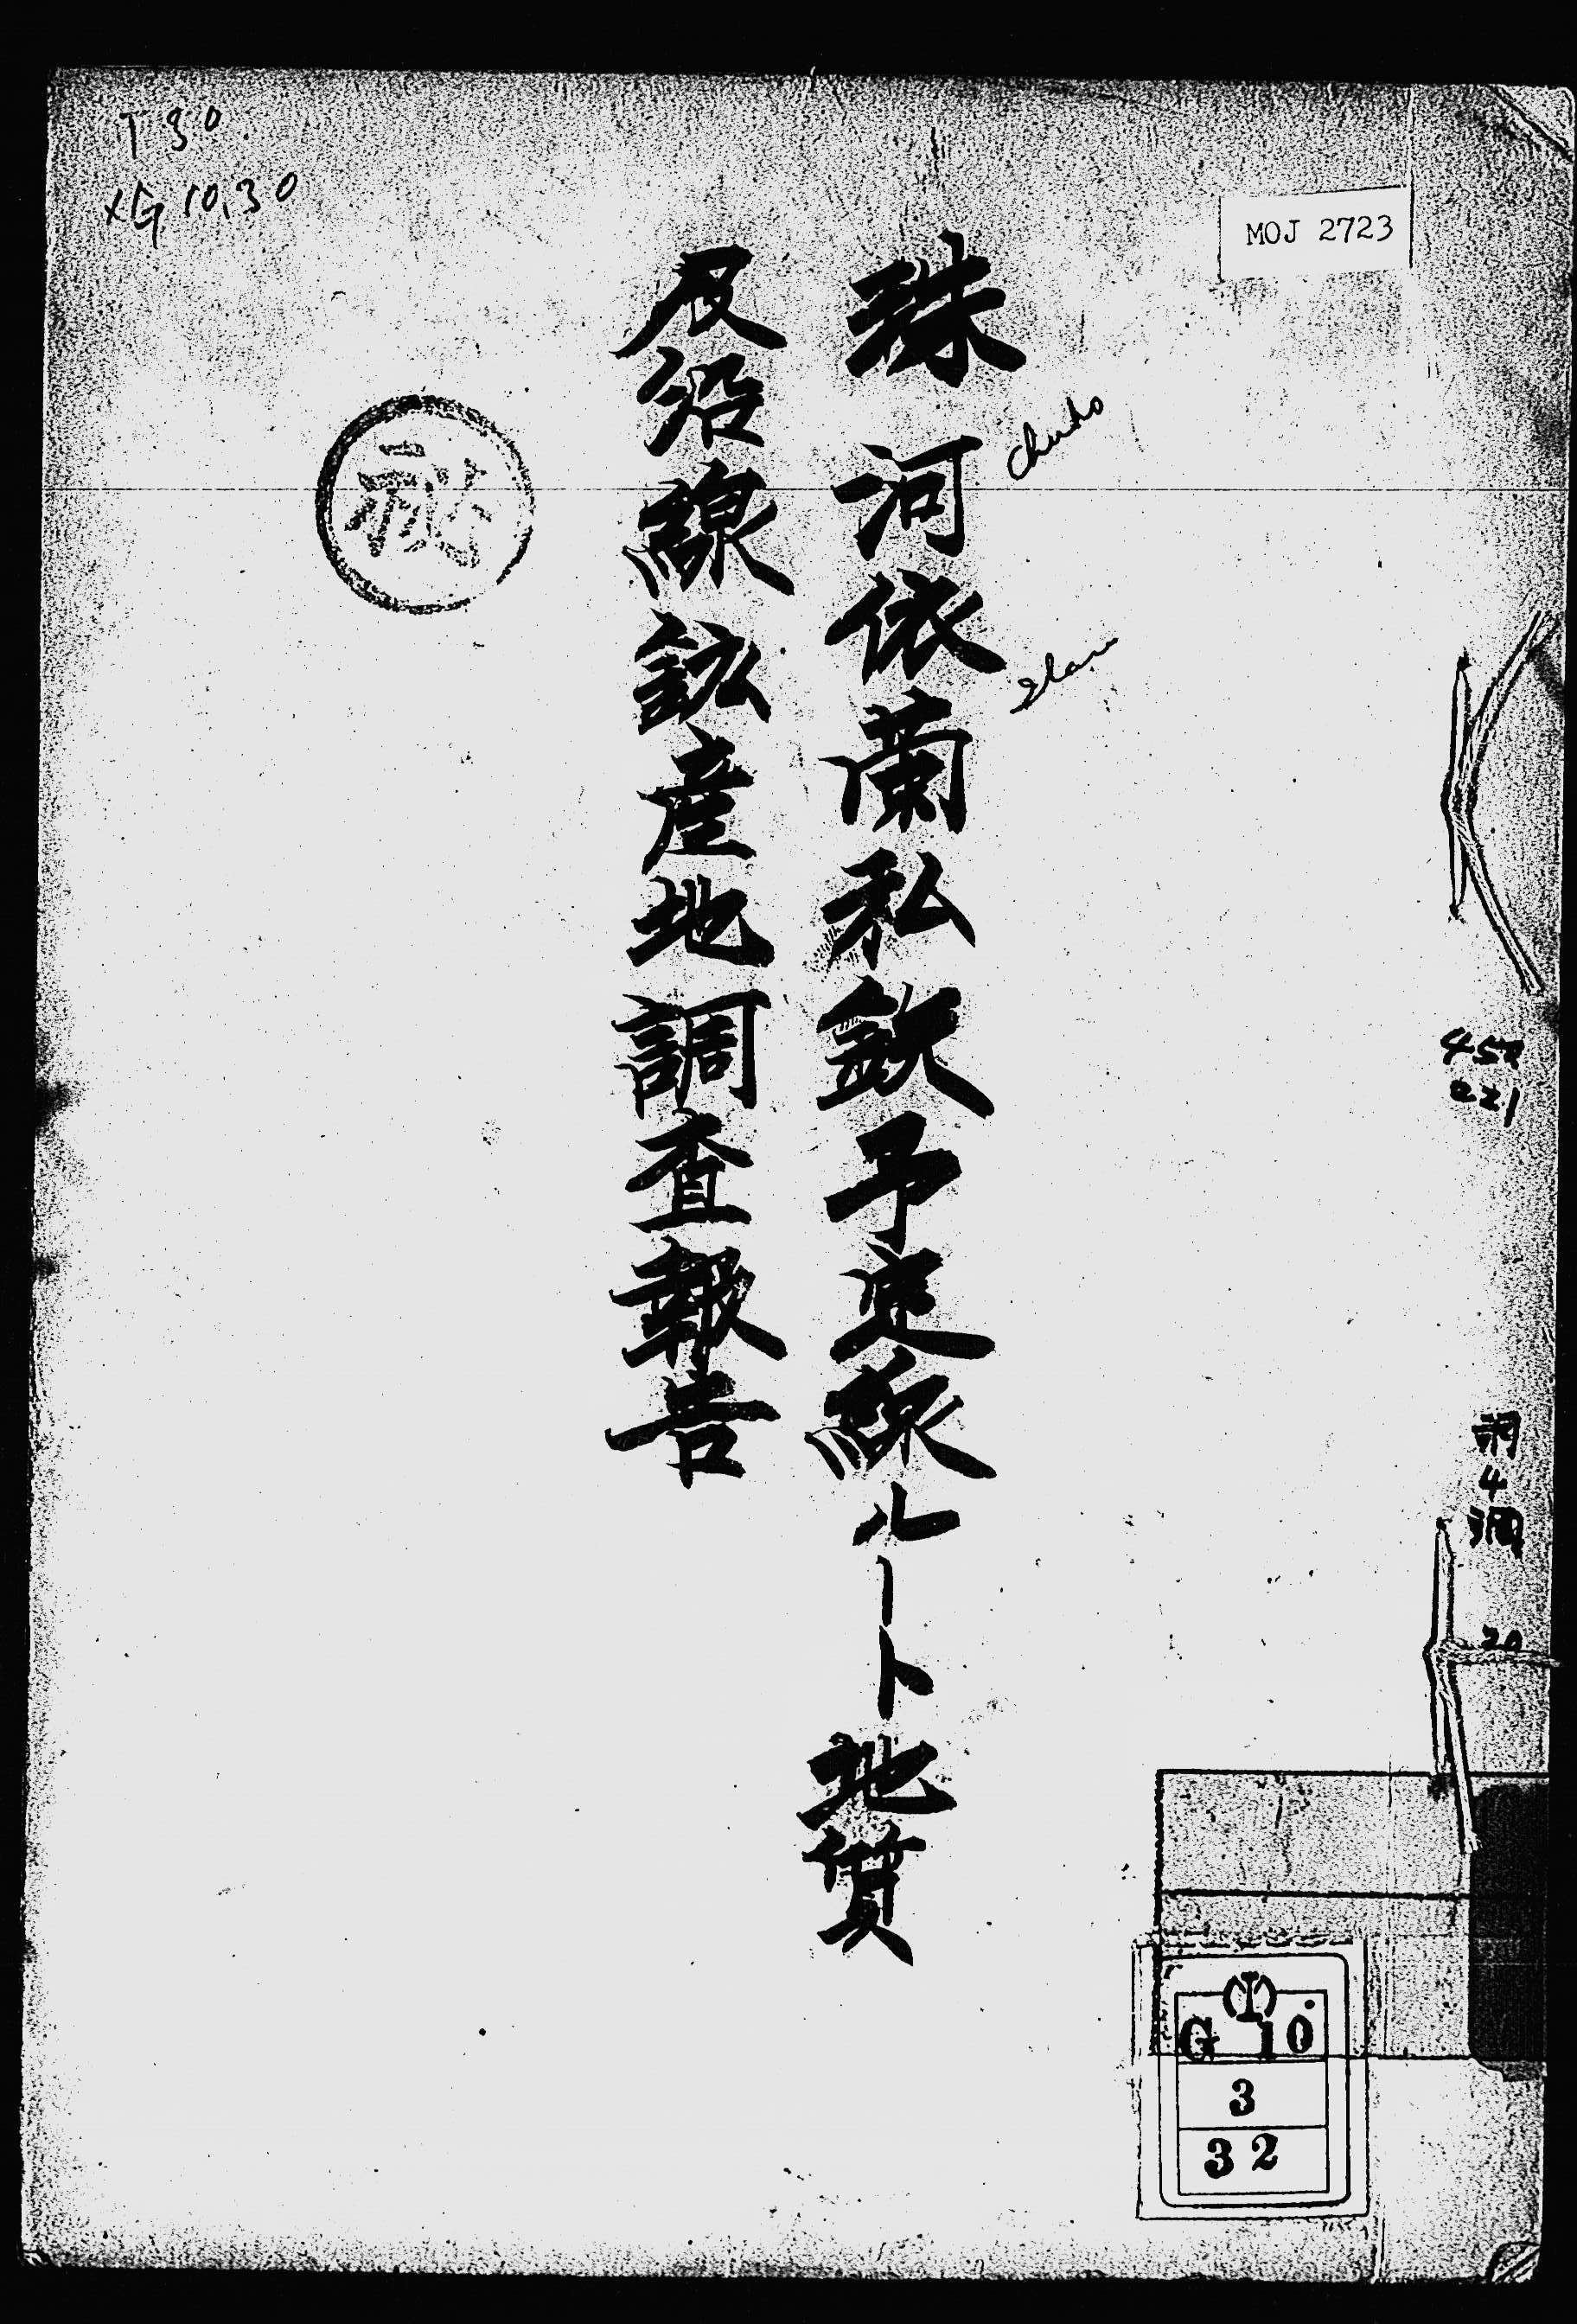 T 30
XG 10,30
MOJ 2723
珠河依蘭私鉄予定線ルート地質
及沿線鉱産地調査報告
Chuho
Ilan
秘
221
4
20
G 10
3
32